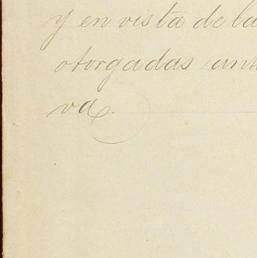 y en vista de la
otorgadas ant
va.